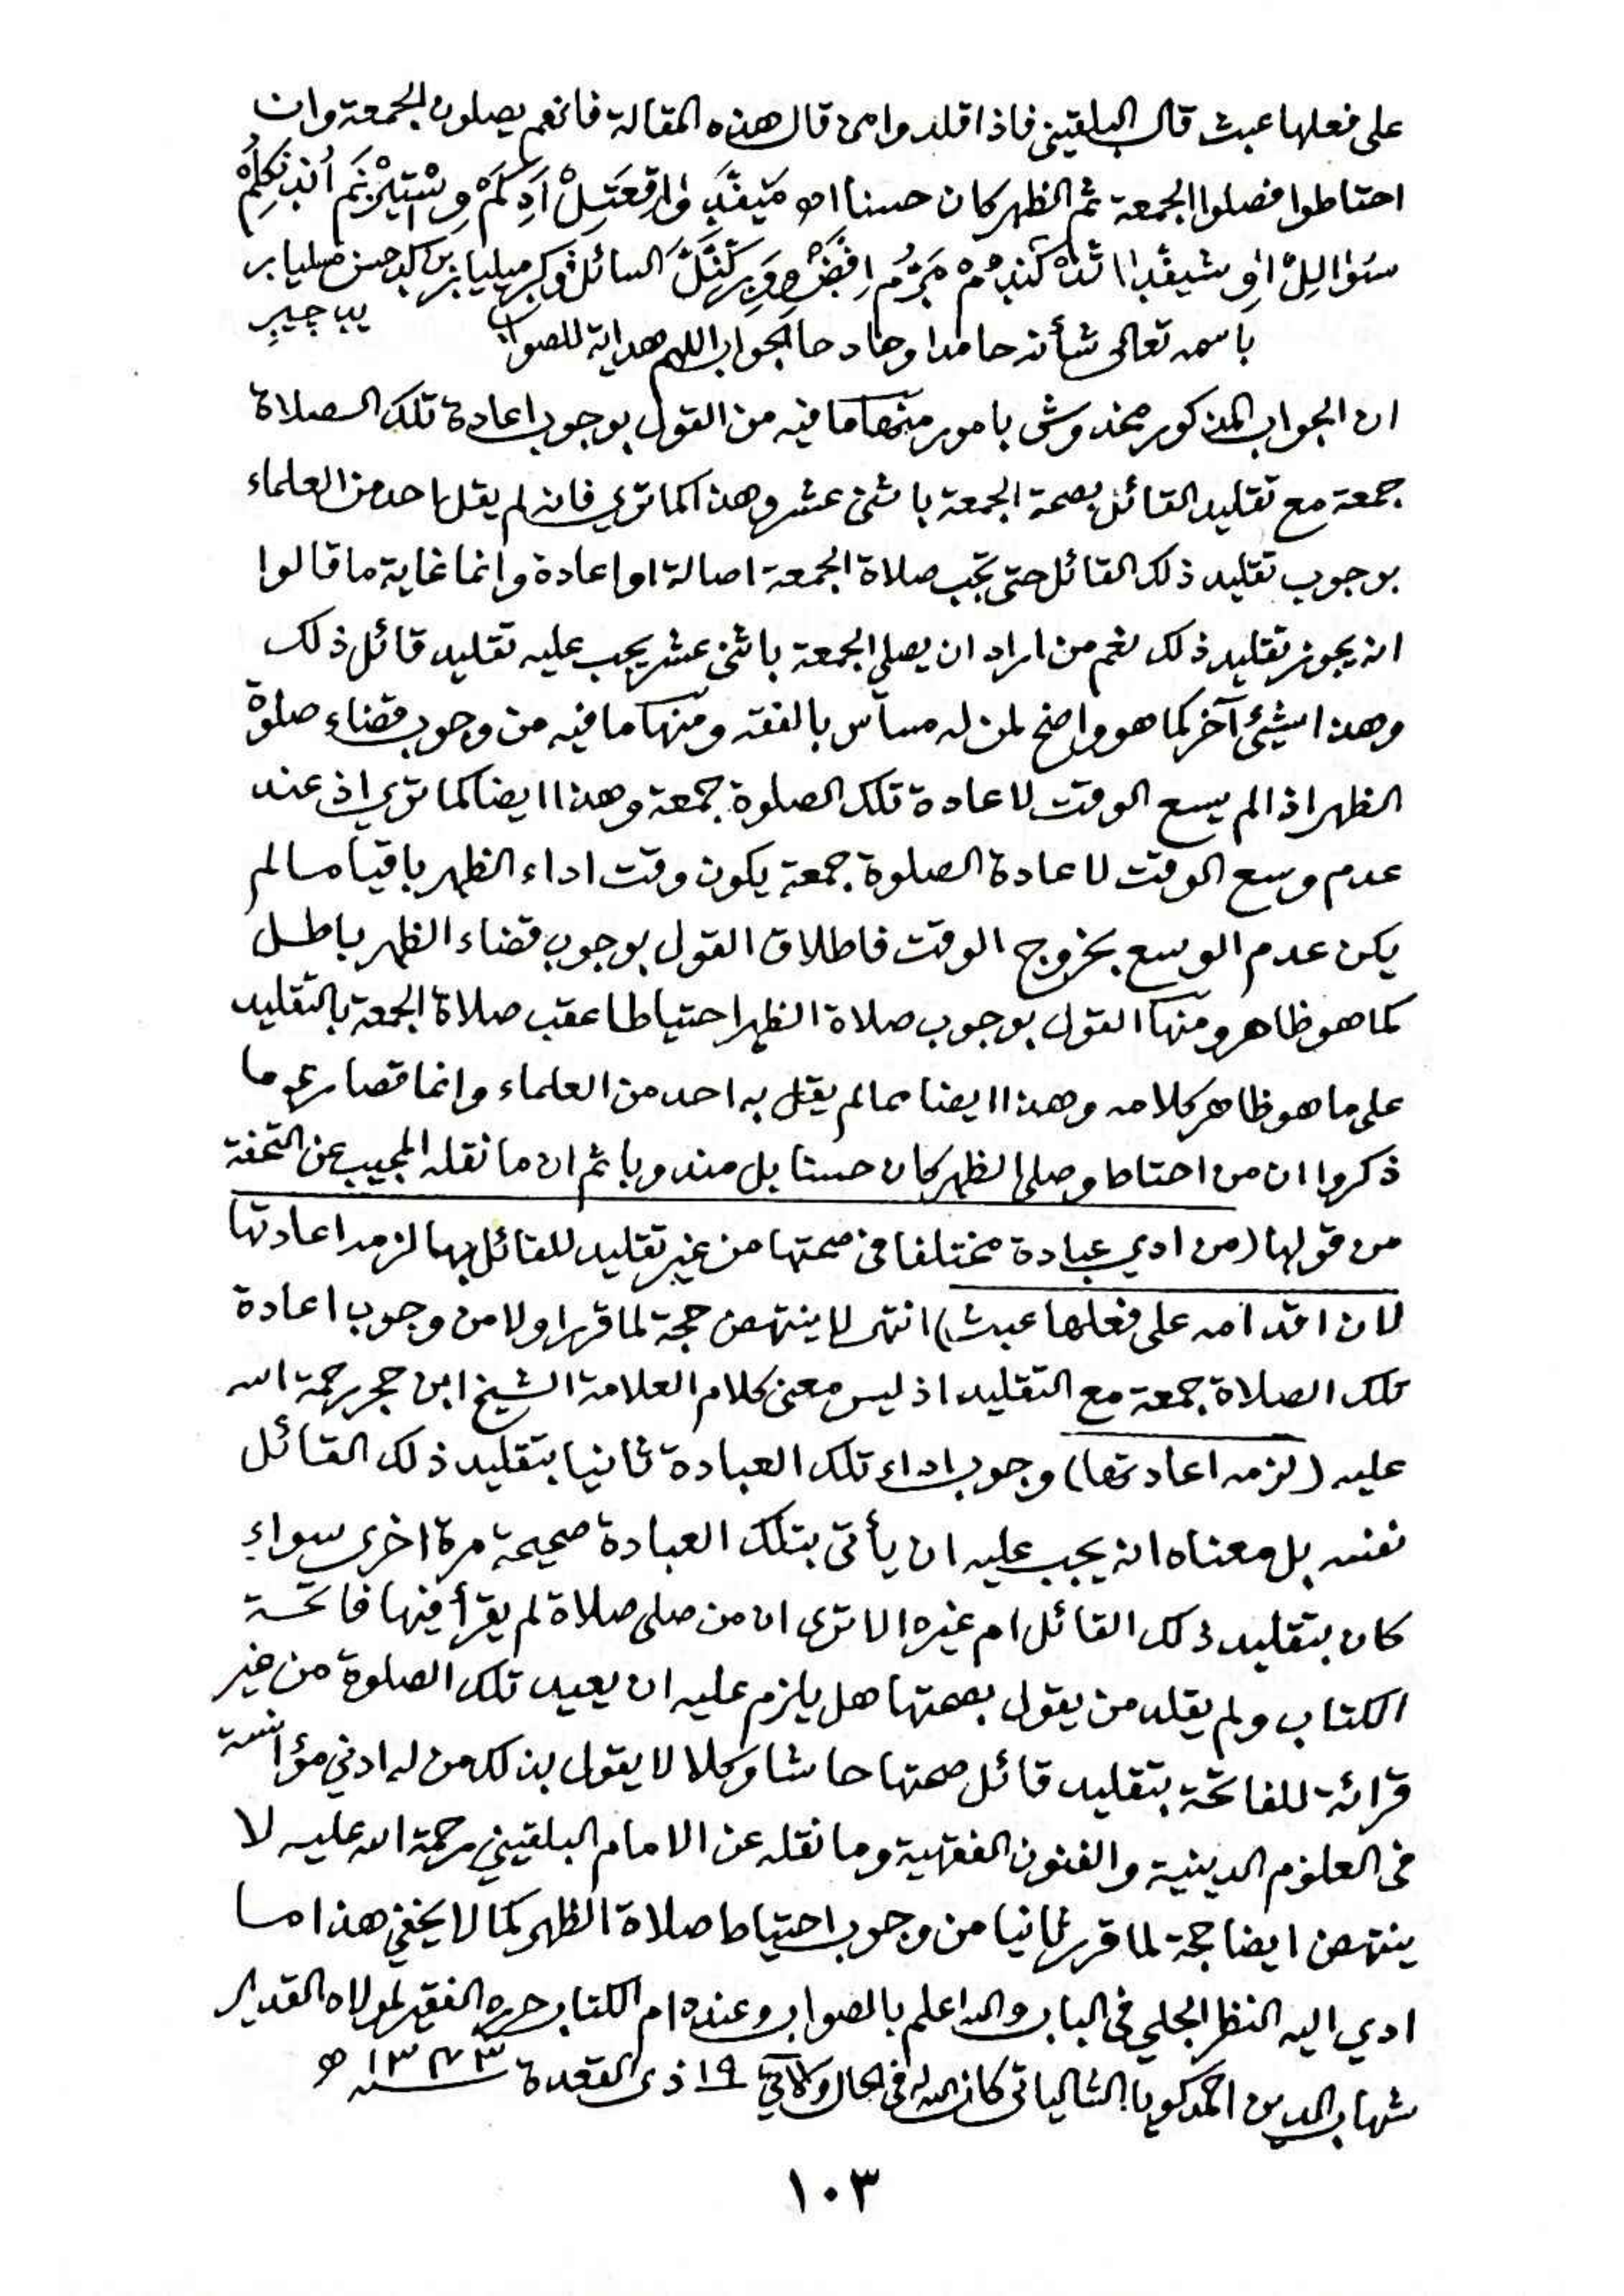 على فعلها عبث قال البلقيني فاذا قلدوا من قال هذه المقالة فانهم يصلون الجمعة وان
احتاطوا فصلوا الجمعة ثم الظهر كان حسنا اه
السائل
باسمه تعالى شأنه حامدا وماد حا الجواب اللهم هداية للصواب
ان الجواب المذكور مخدوش بامور منها ما فيه من القول بوجوب اعادة تلك الصلاة
جمعة مع تقليد القائل بصحة الجمعة باثنى عشر وهذا كما ترى فانه لم يقل احد من العلماء
بوجوب تقليد ذلك القائل حتى تجب صلاة الجمعة اصالة او اعادة وانما غاية ما قالوا
انه يجوز تقليد ذلك نعم من اراد ان يصلي الجمعة باثنى عشر يجب عليه تقليد قائل ذلك
وهذا شيئ آخر كما هو واضح لمن له مساس بالفقه ومنها ما فيه من وجوب قضاء صلوة
الظهر اذا لم يسع الوقت لاعادة تلك الصلوة جمعة وهذا ايضا كما ترى اذ عند
عدم وسع الوقت لاعادة الصلوة جمعة يكون وقت اداء الظهر باقيا ما لم
يكن عدم الوسع بخروج الوقت فاطلاق القول بوجوب قضاء الظهر باطل
كما هو ظاهر ومنها القول بوجوب صلاة الظهر احتياطا عقب صلاة الجمعة بالتقليد
على ما هو ظاهر كلامه وهذا ايضا مما لم يقل به احد من العلماء وانما قصارى ما
ذكروا ان من احتاط وصلى الظهر كان حسنا بل مندوبا ثم ان ما نقله المجيب عن التحفة
من قولها (من ادي عبادة مختلفا في صحتها من غير تقليد للقائل بها لزمه اعادتها
لان اقدامه على فعلها عبث) انتهى لا ينتهض حجة لما قرر اولا من وجوب اعادة
تلك الصلاة جمعة مع التقليد اذ ليس معنى كلام العلامة الشيخ ابن حجر رحمة الله
عليه (لزمه اعادتها) وجوب اداء تلك العبادة ثانيا بتقليد ذلك القائل
نفسه بل معناه انه يجب عليه ان يأتى بتلك العبادة صحيحة مرة اخرى سواء
كان بتقليد ذلك القائل ام غيره الا ترى ان من صلى صلاة لم يقرأ فيها فاتحة
الكتاب ولم يقلد من يقول بصحتها هل يلزم عليه ان يعيد تلك الصلوة من غير
قرائة للفاتحة بتقليد قائل صحتها حاشا وكلا لا يقول بذلك من له ادنى مؤانسة
في العلوم الدينية والفنون الفقهية وما نقله عن الامام البلقيني رحمة الله عليه لا
ينتهض ايضا حجة لما قرر ثانيا من وجوب احتياط صلاة الظهر كما لا يخفي هذا ما
ادي اليه النظر الجلي في الباب والله اعلم بالصواب وعنده ام الكتاب حرره الفقير لمولاه القدير
شهاب الدين احمد كويا الشالياتى كان الله له في الحال والآتي ١٩ ذى القعدة سنة ١٣٧٣ ه
١٠٣